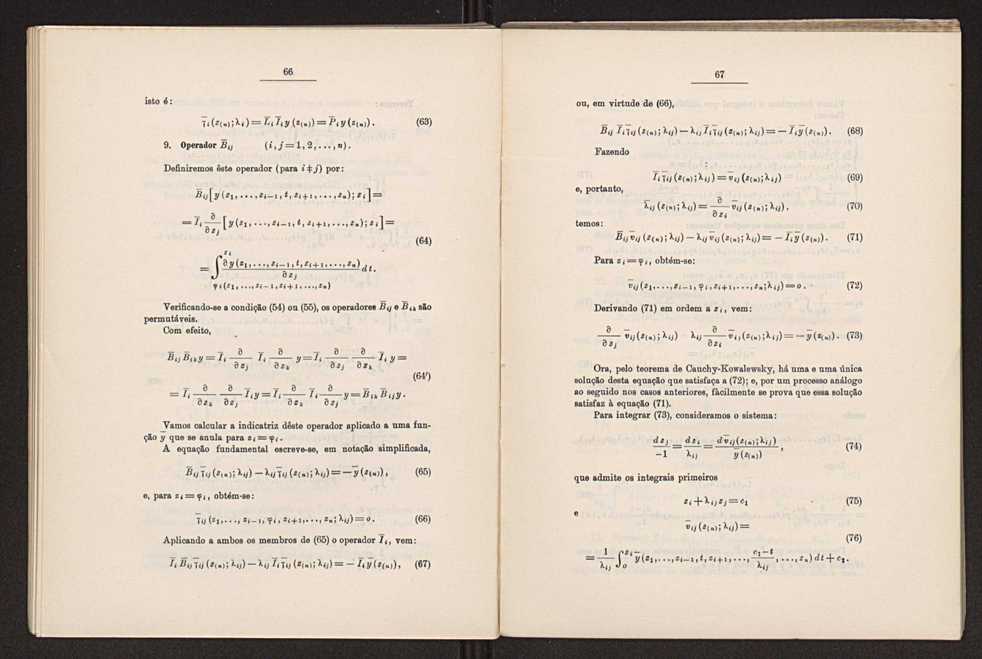 66
isto é:
\bar{γ}_i (z_{(n)}; λ_i) = \bar{L}_i \bar{I}_i y (z_{(n)}) = \bar{P}_i y (z_{(n)}). (63)
9. Operador \bar{B}_{ij} (i, j = 1, 2, ..., n).
Definiremos êste operador (para i ‡ j) por:
\bar{B}_{ij} [y (z_1, ..., z_{i-1}, t, z_{i+1}, ..., z_n); z_i] =
= \bar{I}_i ∂/∂z_j [y (z_1, ..., z_{i-1}, t, z_{i+1}, ..., z_n); z_i] =
(64)
= ∫_{φ_i(z_1, ..., z_{i-1}, z_{i+1}, ..., z_n)}^{z_i} ∂y (z_1, ..., z_{i-1}, t, z_{i+1}, ..., z_n)/∂z_j dt.
Verificando-se a condição (54) ou (55), os operadores \bar{B}_{ij} e \bar{B}_{ik} são
permutáveis.
Com efeito,
\bar{B}_{ij} \bar{B}_{ik} y = \bar{I}_i ∂/∂z_j \bar{I}_i ∂/∂z_k y = \bar{I}_i ∂/∂z_j ∂/∂z_k \bar{I}_i y =
(64')
= \bar{I}_i ∂/∂z_k ∂/∂z_j \bar{I}_i y = \bar{I}_i ∂/∂z_k \bar{I}_i ∂/∂z_j y = \bar{B}_{ik} \bar{B}_{ij} y.
Vamos calcular a indicatriz dêste operador aplicado a uma fun-
ção \bar{y} que se anula para z_i = φ_i.
A equação fundamental escreve-se, em notação simplificada,
\bar{B}_{ij} \bar{γ}_{ij} (z_{(n)}; λ_{ij}) — λ_{ij} \bar{γ}_{ij} (z_{(n)}; λ_{ij}) = — \bar{y} (z_{(n)}), (65)
e, para z_i = φ_i, obtém-se:
\bar{γ}_{ij} (z_1, ..., z_{i-1}, φ_i, z_{i+1}, ..., z_n; λ_{ij}) = o. (66)
Aplicando a ambos os membros de (65) o operador \bar{I}_i, vem:
\bar{I}_i \bar{B}_{ij} \bar{γ}_{ij} (z_{(n)}; λ_{ij}) — λ_{ij} \bar{I}_i \bar{γ}_{ij} (z_{(n)}; λ_{ij}) = — \bar{I}_i \bar{y} (z_{(n)}), (67)
67
ou, em virtude de (66),
\bar{B}_{ij} \bar{I}_i \bar{γ}_{ij} (z_{(n)}; λ_{ij}) — λ_{ij} \bar{I}_i \bar{γ}_{ij} (z_{(n)}; λ_{ij}) = — \bar{I}_i \bar{y} (z_{(n)}). (68)
Fazendo
\bar{I}_i \bar{γ}_{ij} (z_{(n)}; λ_{ij}) = \bar{v}_{ij} (z_{(n)}; λ_{ij}) (69)
e, portanto,
\bar{λ}_{ij} (z_{(n)}; λ_{ij}) = ∂/∂z_i \bar{v}_{ij} (z_{(n)}; λ_{ij}). (70)
temos:
\bar{B}_{ij} \bar{v}_{ij} (z_{(n)}; λ_{ij}) — λ_{ij} \bar{v}_{ij} (z_{(n)}; λ_{ij}) = — \bar{I}_i \bar{y} (z_{(n)}). (71)
Para z_i = φ_i, obtém-se:
\bar{v}_{ij} (z_1, ..., z_{i-1}, φ_i, z_{i+1}, ..., z_n; λ_{ij}) = o. (72)
Derivando (71) em ordem a z_i, vem:
∂/∂z_j \bar{v}_{ij} (z_{(n)}; λ_{ij}) λ_{ij} ∂/∂z_i \bar{v}_{ij} (z_{(n)}; λ_{ij}) = — \bar{y} (z_{(n)}). (73)
Ora, pelo teorema de Cauchy-Kowalewsky, há uma e uma única
solução desta equação que satisfaça a (72); e, por um processo análogo
ao seguido nos casos anteriores, fàcilmente se prova que essa solução
satisfaz à equação (71).
Para integrar (73), consideramos o sistema:
dz_j/-1 = dz_i/λ_{ij} = d\bar{v}_{ij} (z_{(n)}; λ_{ij})/\bar{y} (z_{(n)}), (74)
que admite os integrais primeiros
z_i + λ_{ij} z_j = c_1 (75)
e
\bar{v}_{ij} (z_{(n)}; λ_{ij}) =
(76)
= 1/λ_{ij} ∫_o^{z_i} \bar{y} (z_1, ..., z_{i-1}, t, z_{i+1}, ..., (c_1 - t)/λ_{ij}, ..., z_n) dt + c_2.